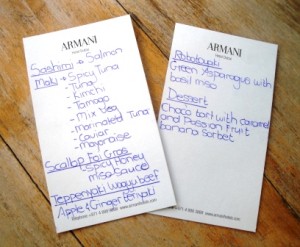 ARMANI
Sashimi → Salmon
Maki → Spicy Tuna
- Tuna
- Kimchi
- Tamago
- Mix Veg
- Marinated Tuna
- Caviar
- mayonaise
Scallop Foi Gras
Spicy Honey
miso Sauce
Teppenyaki wagyu beef
Apple & Ginger teriyaki
ARMANI
Robotayaki
Green Asparagus with
basil miso
Dessert
Choco tart with caramel
and Passion fruit
banana sorbet